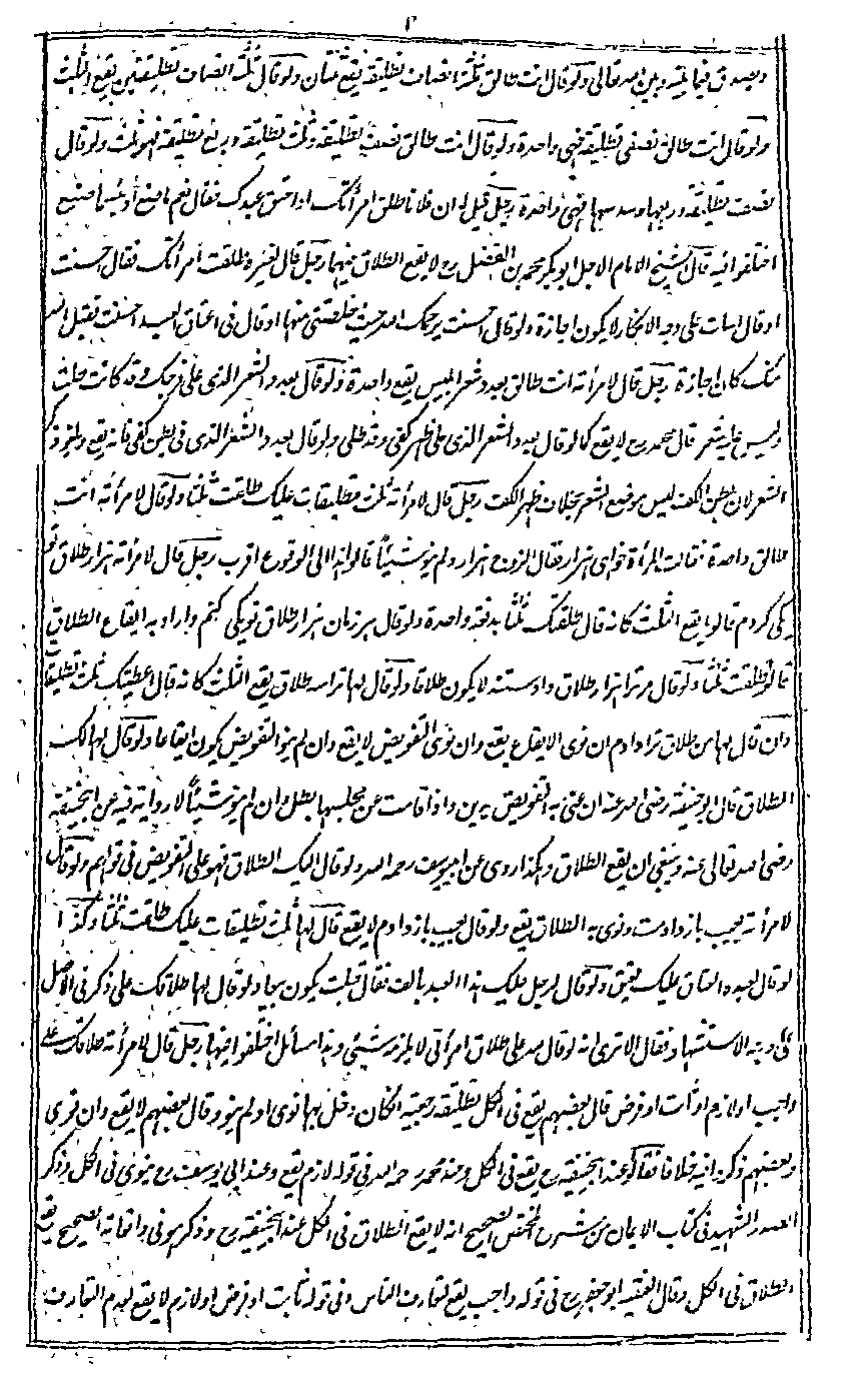 ويصدق فيما بينه وبين الله تعالى ولو قال انت طالق ثلثة انصاف تطليقة يقع ثنتان ولو قال ثلثة انصاف تطليقتين يقع الثلث
ولو قال انت طالق نصفى تطليقة فهي واحدة ولو قال انت طالق نصف تطليقة وثلث تطليقة وربع تطليقة فهو ثلث ولو قال
نصف تطليقة وربعها وسدسها فهي واحدة رجل قيل له ان فلانا طلق امرأتك او اعتق عبدك فقال نعم ما صنع او بئسما صنع
اختلفوا فيه قال الشيخ الامام الاجل ابو بكر محمد بن الفضل رح لا يقع الطلاق فيهما رجل قال لغيره طلقت امرأتك فقال احسنت
او قال اسات على وجه الانكار لا يكون اجازة ولو قال احسنت يرحمك الله حيث خلصتني منها او قال في اعتاق العبد احسنت تقبل الله
منك كان اجازة رجل قال لامرأته انت طالق بعدد شعر ابليس يقع واحدة ولو قال بعدد الشعر الذي على فرجك وقد كانت طلت
وليس عليه شعر قال محمد رح لا يقع كما لو قال بعدد الشعر الذي على ظهر كفى وقد طلى ولو قال بعدد الشعر الذي في بطن كفى فانه يقع
الشعر لان بطن الكف ليس موضع الشعر بخلاف ظهر الكف رجل قال لامرأته ثلث تطليقات عليك طلقت ثلثا ولو قال لامرأته انت
طالق واحدة فقالت المرأة خواى هزار فقال الزوج هزار ولم ينو شيئا قالوا هذا الى الوقوع اقرب رجل قال لامرأته هزار طلاق تو
يكى كردم قالوا يقع الثلث كانه قال طلقتك ثلثا بدفعة واحدة ولو قال هر زمان هزار طلاق تو يكى كنم واراد به ايقاع الطلاق
قالوا طلقت ثلثا ولو قال مر ترا هزار طلاق لا يكون طلاقا ولو قال لها ترا سه طلاق يقع الثلث كانه قال اعطيتك ثلث تطليقات
وان قال لها من طلاق ترا دادم ان نوى الايقاع يقع وان نوى التفويض لا يقع وان لم ينو التفويض يكون ايقاعا ولو قال لها لك
الطلاق قال ابو حنيفة رضى الله عنه ان عنى به التفويض يدين واذا قامت عن مجلسها بطل وان لم ينو شيئا لا رواية فيه عن ابيحنيفة
رضى الله تعالى عنه وينبغى ان يقع الطلاق وهكذا روى عن ابيوسف رحمه الله ولو قال اليك الطلاق فهو على التفويض في قولهم ولو قال
لامرأته بجيب باز دادمت ونوى به الطلاق يقع ولو قال بجيب باز دادم لا يقع قال لها ثلث تطليقات عليك طلقت ثلثا وكذا
لو قال لعبده العتاق عليك يعتق ولو قال لرجل عليك هذا العبد بالف فقال قبلت يكون بيعا ولو قال لها طلاقك على ذكر في الاصل
على وجه الاستشهاد فقال الا ترى انه لو قال لله على طلاق امرأتى لا يلزمه شيئ وهذا مسائل اختلفوا فيها رجل قال لامرأته طلاقك على
واجب او لازم او ثابت او فرض قال بعضهم يقع في الكل تطليقة رجعية ان كان دخل بها نوى او لم ينو وقال بعضهم لا يقع وان نوى
وبعضهم ذكروا فيه خلافا فقالوا عند ابيحنيفة رح يقع في الكل وعند محمد رحمه الله في قوله لازم يقع وعند ابى يوسف رح ينوى في الكل وذكر
الصدر الشهيد في كتاب الايمان من شرح المختصر الصحيح انه لا يقع الطلاق في الكل عند ابيحنيفة رح وذكر هو في واقعاته الصحيح يقع
الطلاق في الكل وقال الفقيه ابو جعفر رح في قوله واجب يقع لتعارف الناس وفي قوله ثابت او فرض او لازم لا يقع لعدم التعارف